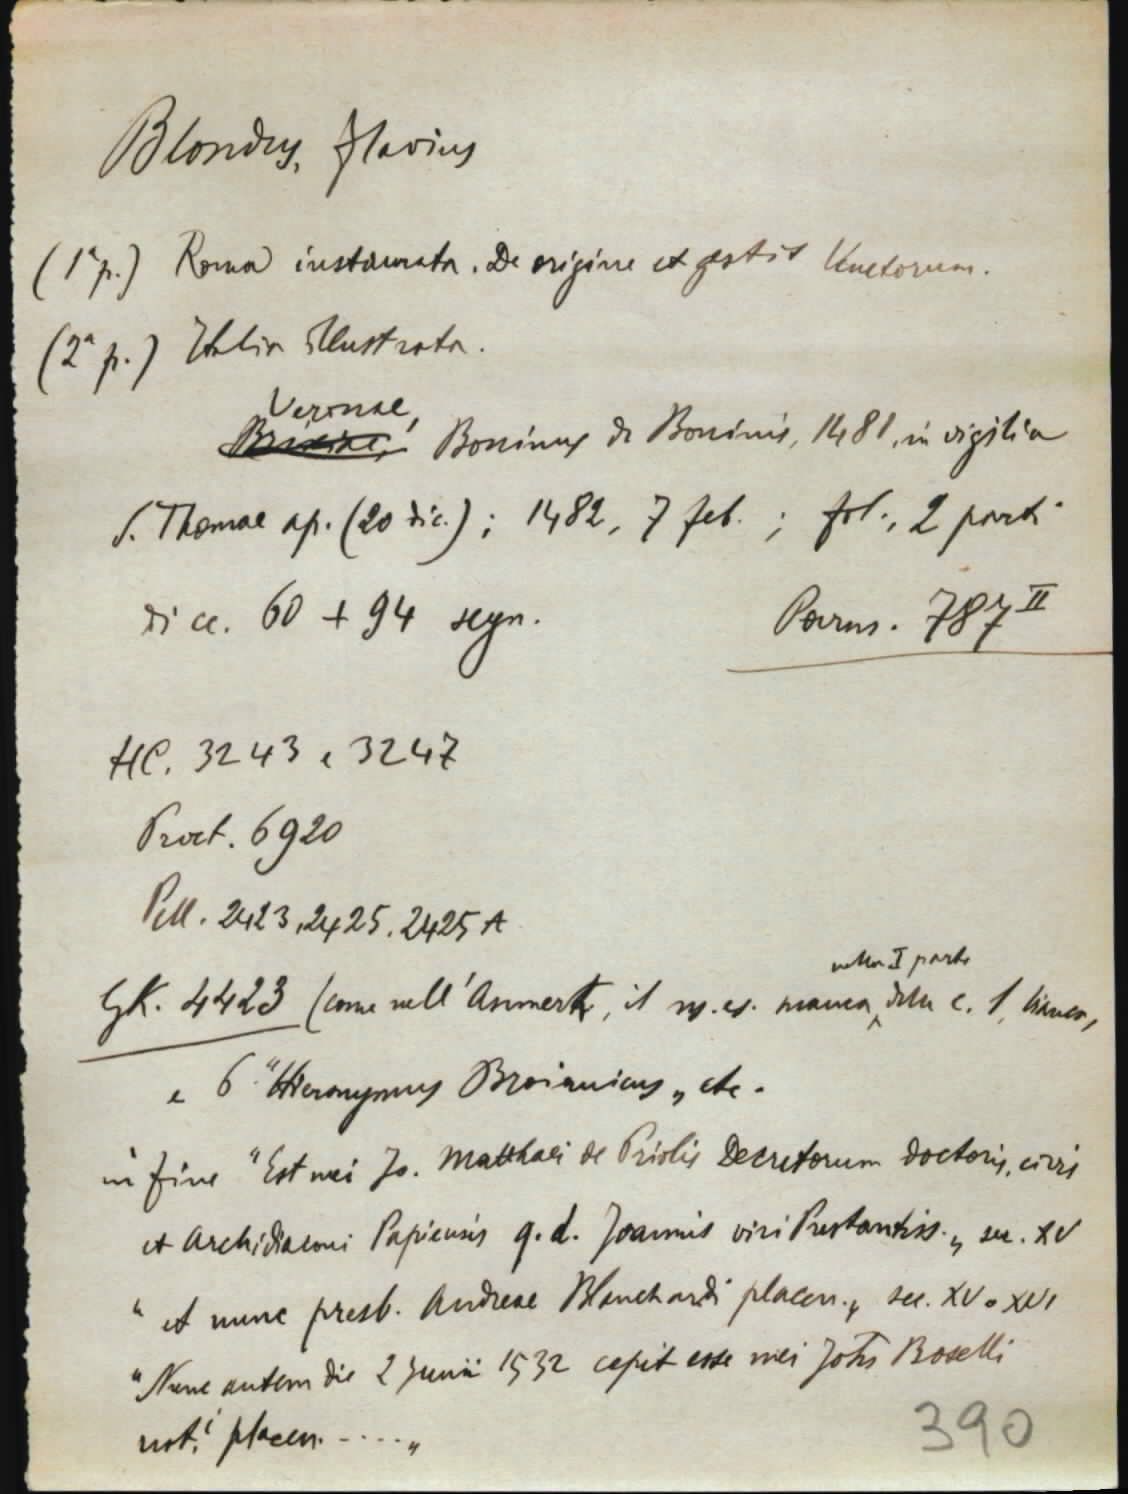 Blondus, Flavius
(1ª p.) Roma instaurata. De origine et gestis Venetorum.
(2ª p.) Italia illustrata.
Veronae,
Brixiae, Boninus de Boninis, 1481, in vigilia
S. Thomae ap. (20 dic.); 1482, 7 feb.; fol., 2 parti
di cc. 60 + 94 segn.
Parm. 787 II
HC. 3243 e 3247
Proct. 6920
Pell. 2423, 2425, 2425 A
nella I parte
GK. 4423 (come nell'Anmerk, il ns. es. manca della c. 1, bianca,
e 6 "Hieronymus Broianicus" etc.
in fine "Est mei Jo. Matthaei de Priolis Decretorum doctoris, civis
et Archidiaconi Papiensis q.d. Joannis viri Prestantiss." sec. XV
"et nunc presb. Andreae Blanchardi placen." sec. XV o XVI
"Nunc autem die 2 Junii 1532 cepit esse mei Johis Boselli
not.i placen. ....."
390